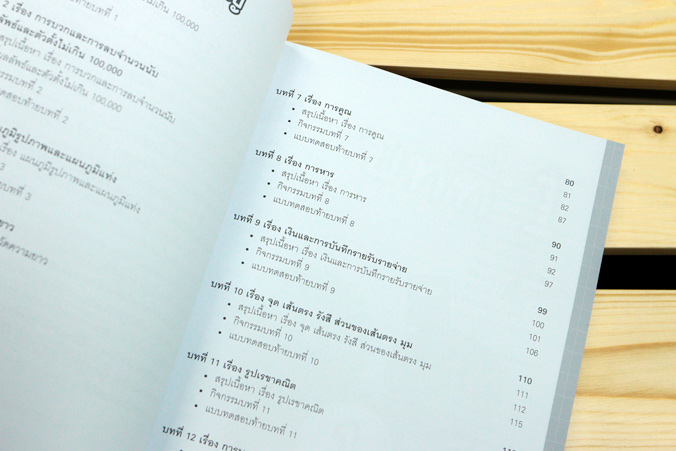 ม่เกิน 100,000
ายบทที่ 1
2 เรื่อง การบวกและการลบจำนวนนับ
ลัพธ์และตัวตั้งไม่เกิน 100,000
เรื่อง การบวกและการลบจำนวนนับ
ลัพธ์และตัวตั้งไม่เกิน 100,000
รรมบทที่ 2
ทดสอบท้ายบทที่ 2
ภูมิรูปภาพและแผนภูมิแท่ง
เรื่อง แผนภูมิรูปภาพและแผนภูมิแท่ง
3
บทที่ 3
ยาว
วัดความยาว
บทที่ 7 เรื่อง การคูณ 80
• สรุปเนื้อหา เรื่อง การคูณ 81
• กิจกรรมบทที่ 7 82
• แบบทดสอบท้ายบทที่ 7 87
บทที่ 8 เรื่อง การหาร 90
• สรุปเนื้อหา เรื่อง การหาร 91
• กิจกรรมบทที่ 8 92
• แบบทดสอบท้ายบทที่ 8 97
บทที่ 9 เรื่อง เงินและการบันทึกรายรับรายจ่าย 99
• สรุปเนื้อหา เรื่อง เงินและการบันทึกรายรับรายจ่าย 100
• กิจกรรมบทที่ 9 101
• แบบทดสอบท้ายบทที่ 9 106
บทที่ 10 เรื่อง จุด เส้นตรง รังสี ส่วนของเส้นตรง มุม 110
• สรุปเนื้อหา เรื่อง จุด เส้นตรง รังสี ส่วนของเส้นตรง มุม 111
• กิจกรรมบทที่ 10 112
• แบบทดสอบท้ายบทที่ 10 115
บทที่ 11 เรื่อง รูปเรขาคณิต
• สรุปเนื้อหา เรื่อง รูปเรขาคณิต
• กิจกรรมบทที่ 11
• แบบทดสอบท้ายบทที่ 11
บทที่ 12 เรื่อง